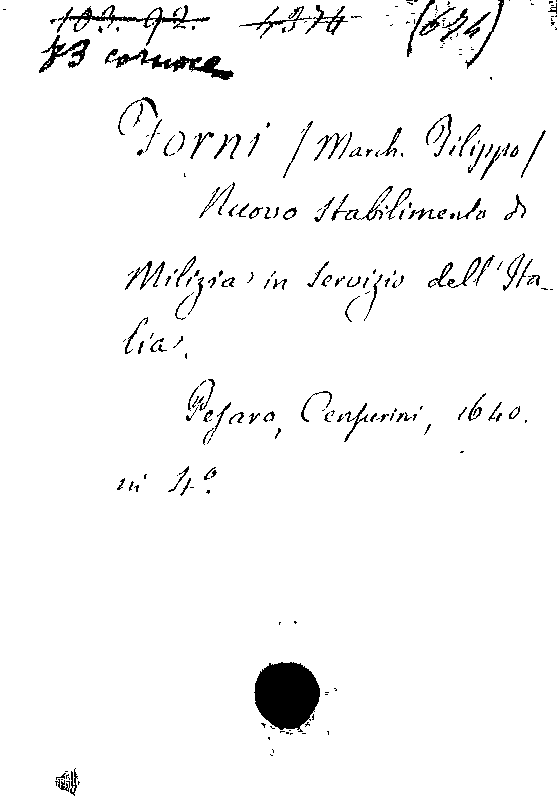 103. 92. 4374 (674)
73 cornice
Forni / March. Filippo /
Nuovo stabilimento di
Milizia in servizio dell'Ita-
lia.
Pesaro, Censurini, 1640.
in 4º